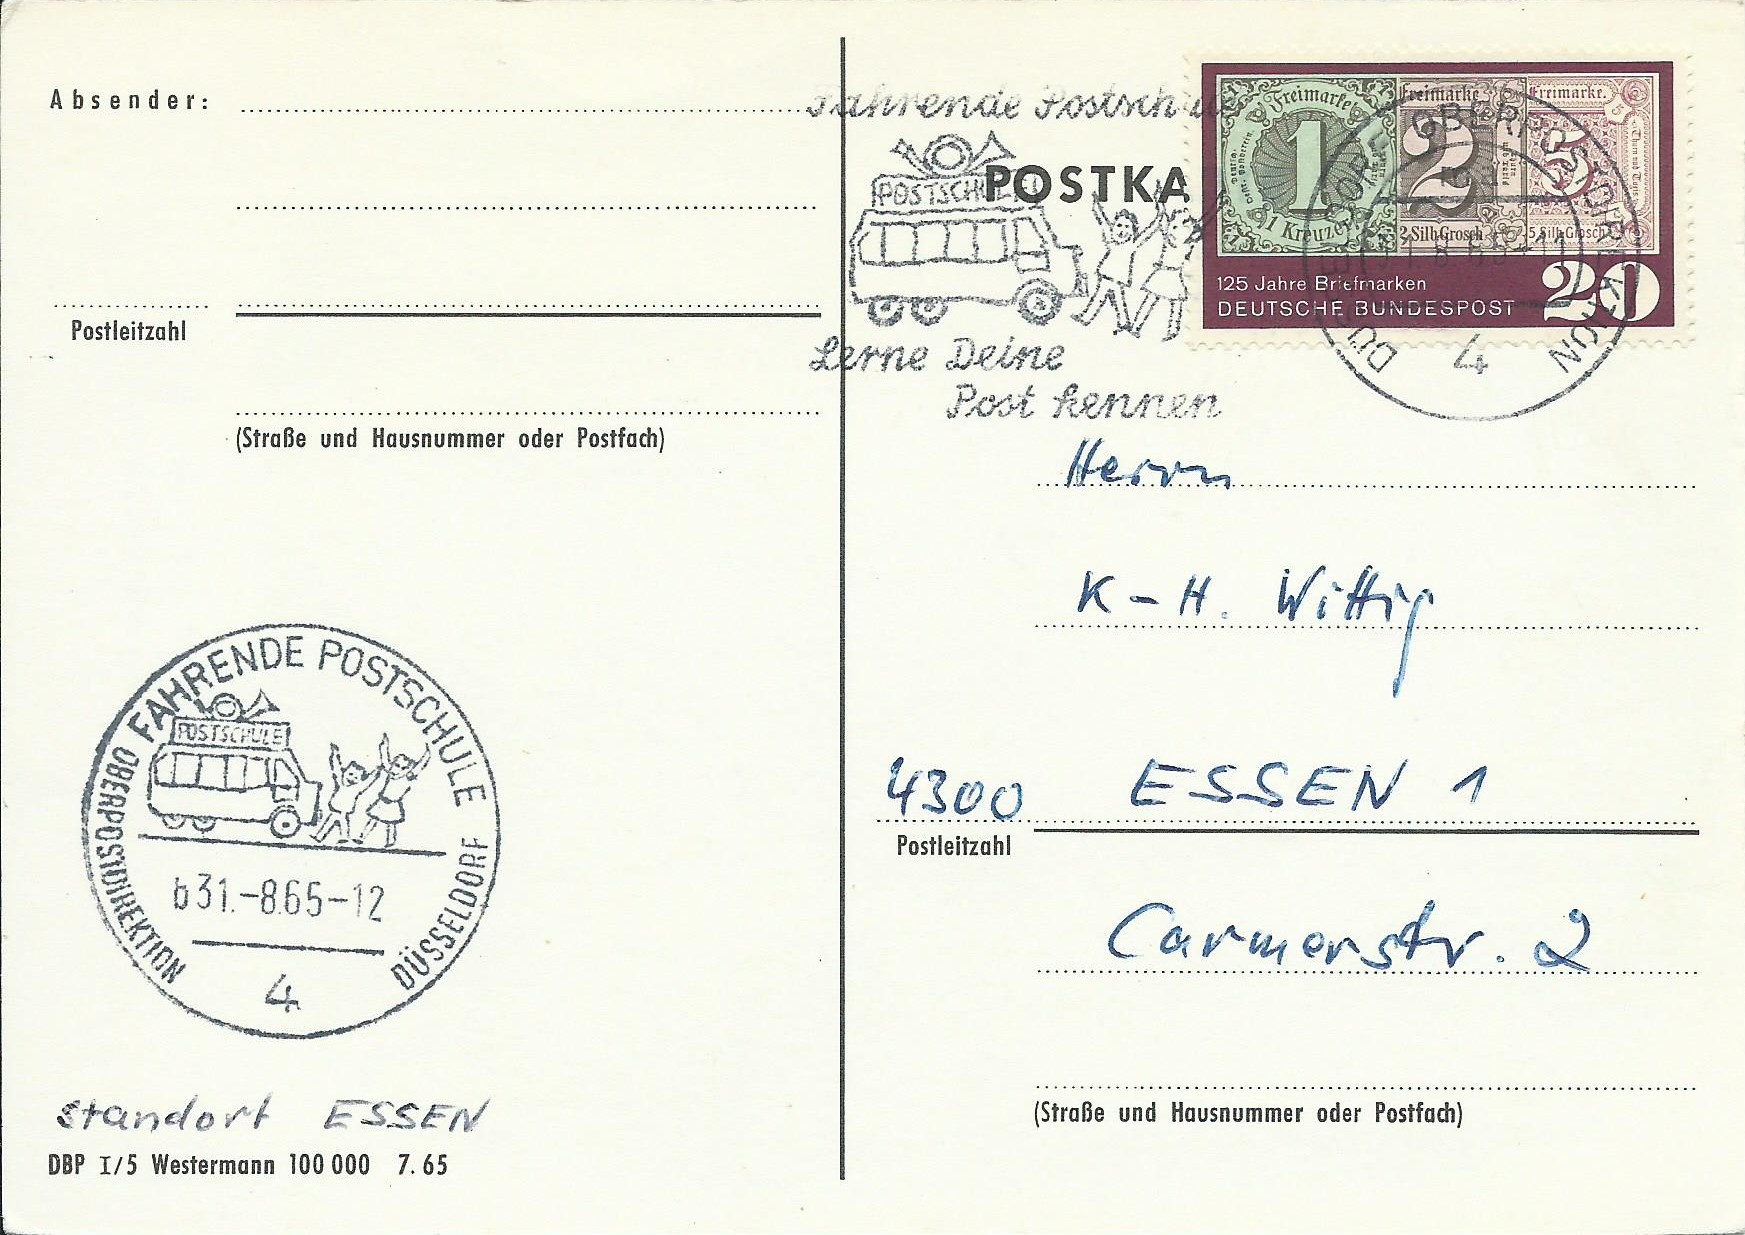 Absender:
Postleitzahl
(Straße und Hausnummer oder Postfach)
FAHRENDE POSTSCHULE
POSTSCHULE
OBERPOSTDIREKTION
DÜSSELDORF
b31.-8.65-12
4
Standort ESSEN
DBP I/5 Westermann 100 000 7.65
Fahrende Postschule
POSTSCHULE
POSTKA
Lerne Deine
Post kennen
Freimarke
1
1 Kreuzer
Freimarke
2
2 Silb. Grosch.
Freimarke.
5
5 Silb. Grosch.
125 Jahre Briefmarken
DEUTSCHE BUNDESPOST
20
OBERPOSTDIREKTION
DÜSSELDORF
4
Herrn
K-H. Wittig
4300 ESSEN 1
Postleitzahl
Carmerstr. 2
(Straße und Hausnummer oder Postfach)